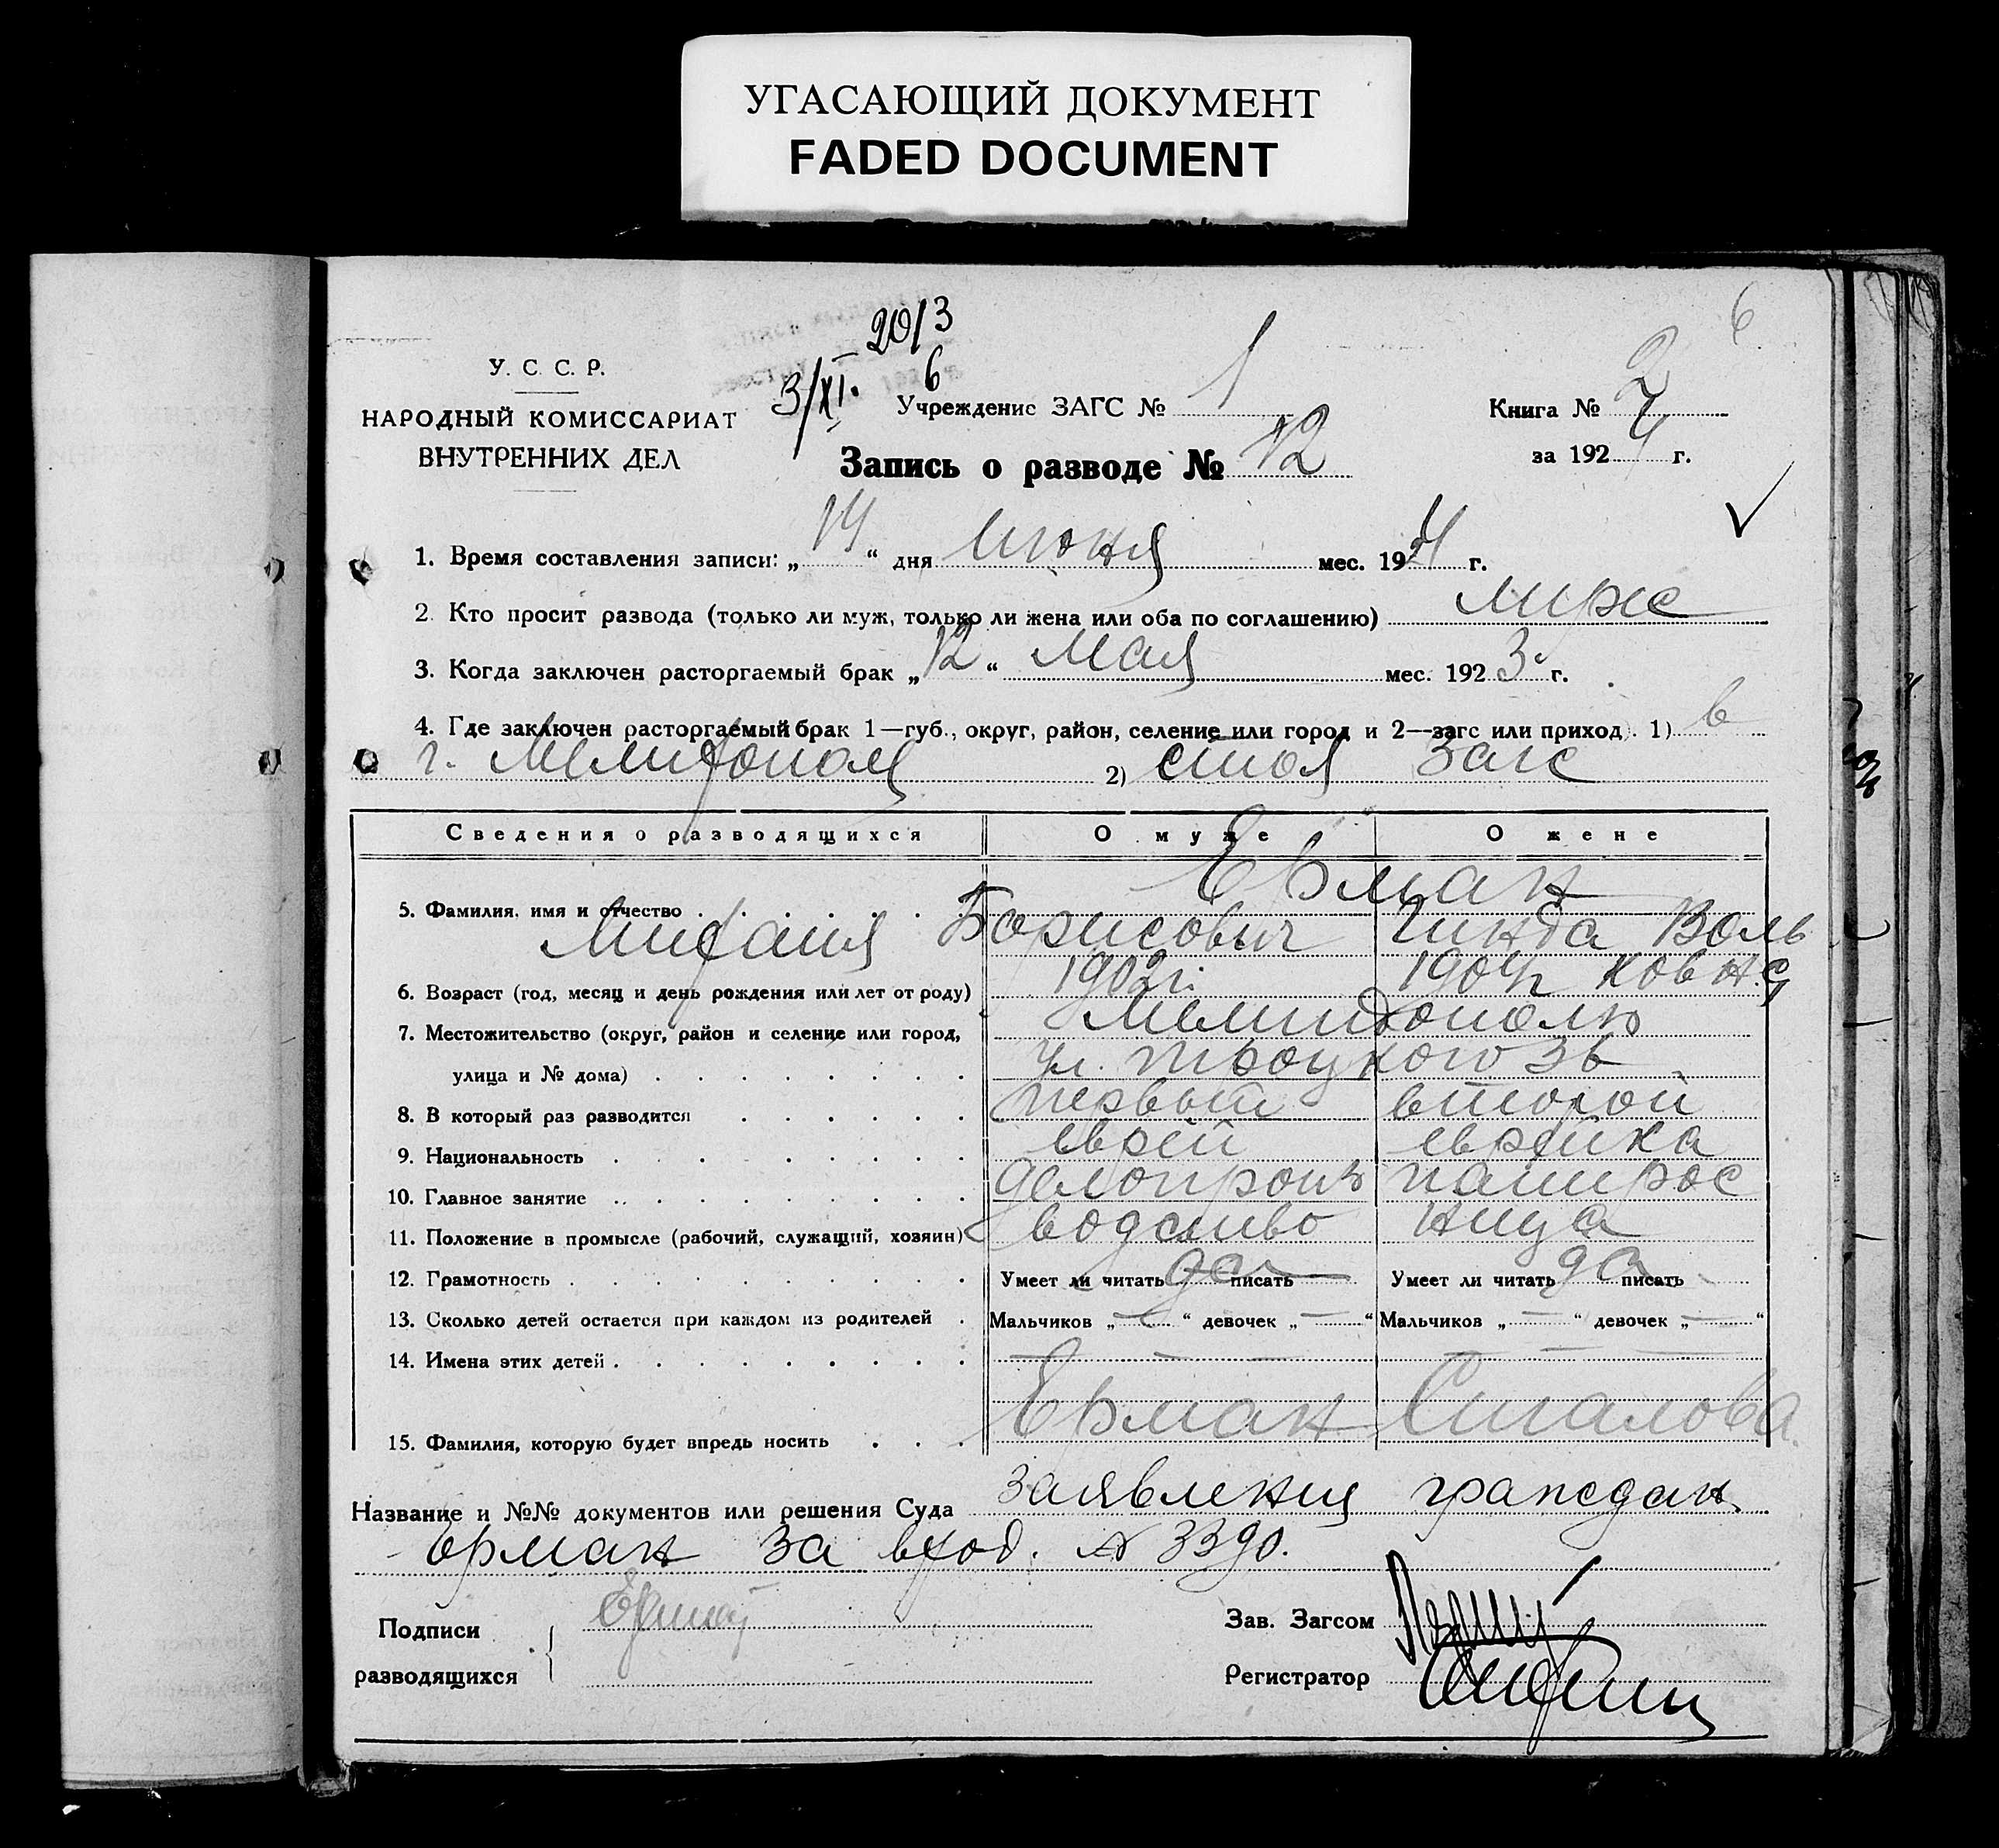 УГАСАЮЩИЙ ДОКУМЕНТ
FADED DOCUMENT
6
20/3
3/XI. 6
У. С. С. Р.
НАРОДНЫЙ КОМИССАРИАТ
ВНУТРЕННИХ ДЕЛ
Учреждение ЗАГС № 1
Книга № 2
за 1924 г.
Запись о разводе № 12
1. Время составления записи: „14“ дня июня мес. 1924 г.
2. Кто просит развода (только ли муж, только ли жена или оба по соглашению)
3. Когда заключен расторгаемый брак „12“ мая мес. 1923 г.
4. Где заключен расторгаемый брак 1—губ., округ, район, селение или город и 2—загс или приход). 1) в
г. 2) Загс
Сведения о разводящихся О муже О жене
Ерман
5. Фамилия, имя и отчество Борисович Гинда Воль
6. Возраст (год, месяц и день рождения или лет от роду) 1902г. 1904г ковна
7. Местожительство (округ, район и селение или город, Мелитополь
улица и № дома) ул. Троцкого 36
8. В который раз разводится первый второй
9. Национальность еврей еврейка
10. Главное занятие делопроиз папирос
11. Положение в промысле (рабочий, служащий, хозяин) водство ница
12. Грамотность Умеет ли читать да писать Умеет ли читать да писать
13. Сколько детей остается при каждом из родителей Мальчиков „—“ девочек „—“ Мальчиков „—“ девочек „—“
14. Имена этих детей
15. Фамилия, которую будет впредь носить Ерман Сталова
Название и №№ документов или решения Суда заявления граждан
Ерман за вход. № 3390.
Подписи
разводящихся
Зав. Загсом
Регистратор